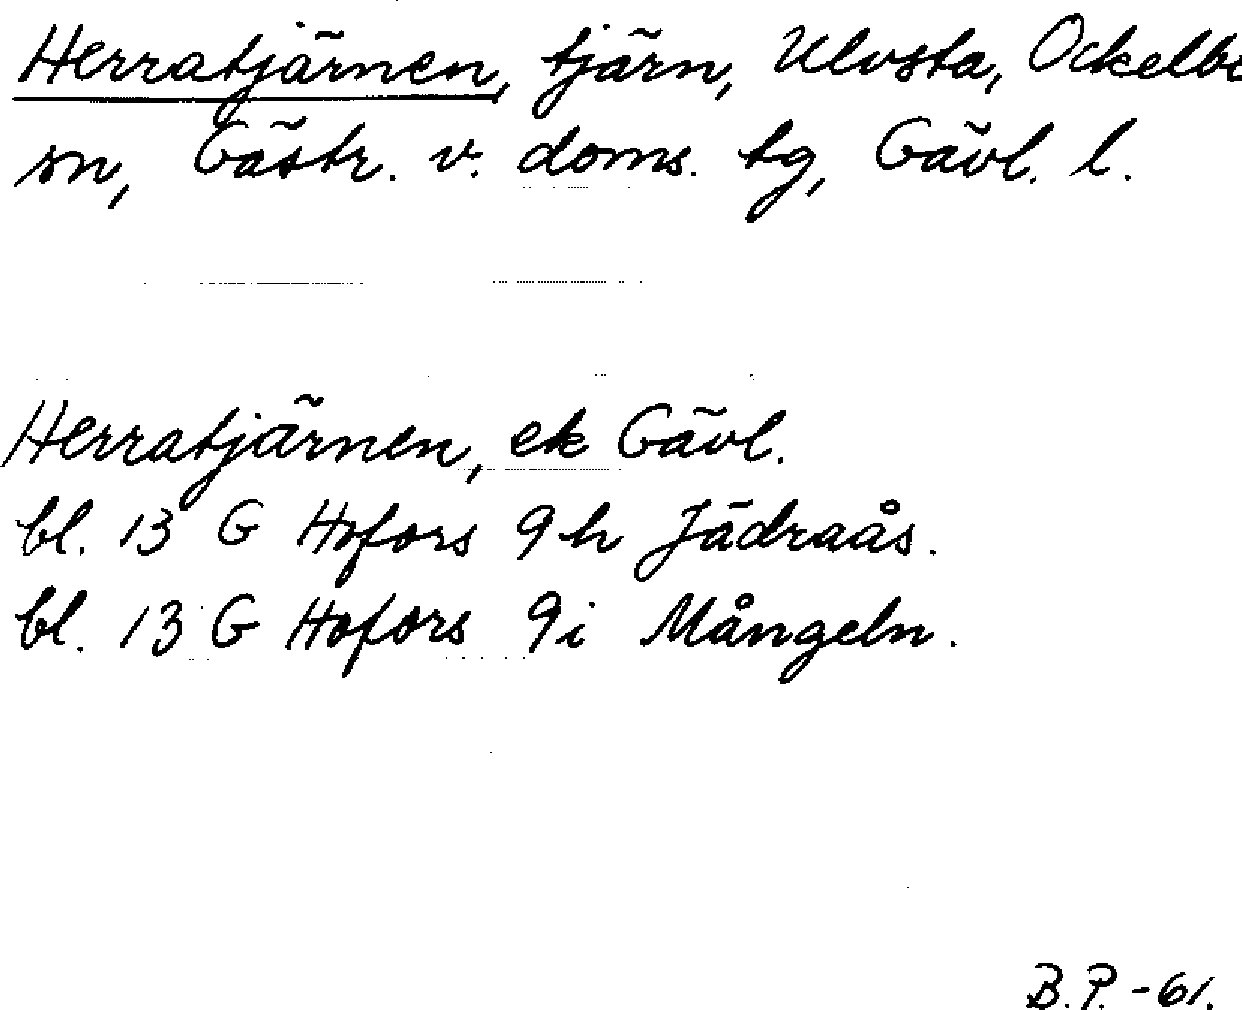 Herratjärnen, tjärn, Ulvsta, Ockelbo
sn, Gästr. v. doms. tg, Gävl. l.
Herratjärnen, ek Gävl.
bl. 13 G Hofors 9h Jädraås.
bl. 13 G Hofors 9i Mångeln.
B.P. -61.